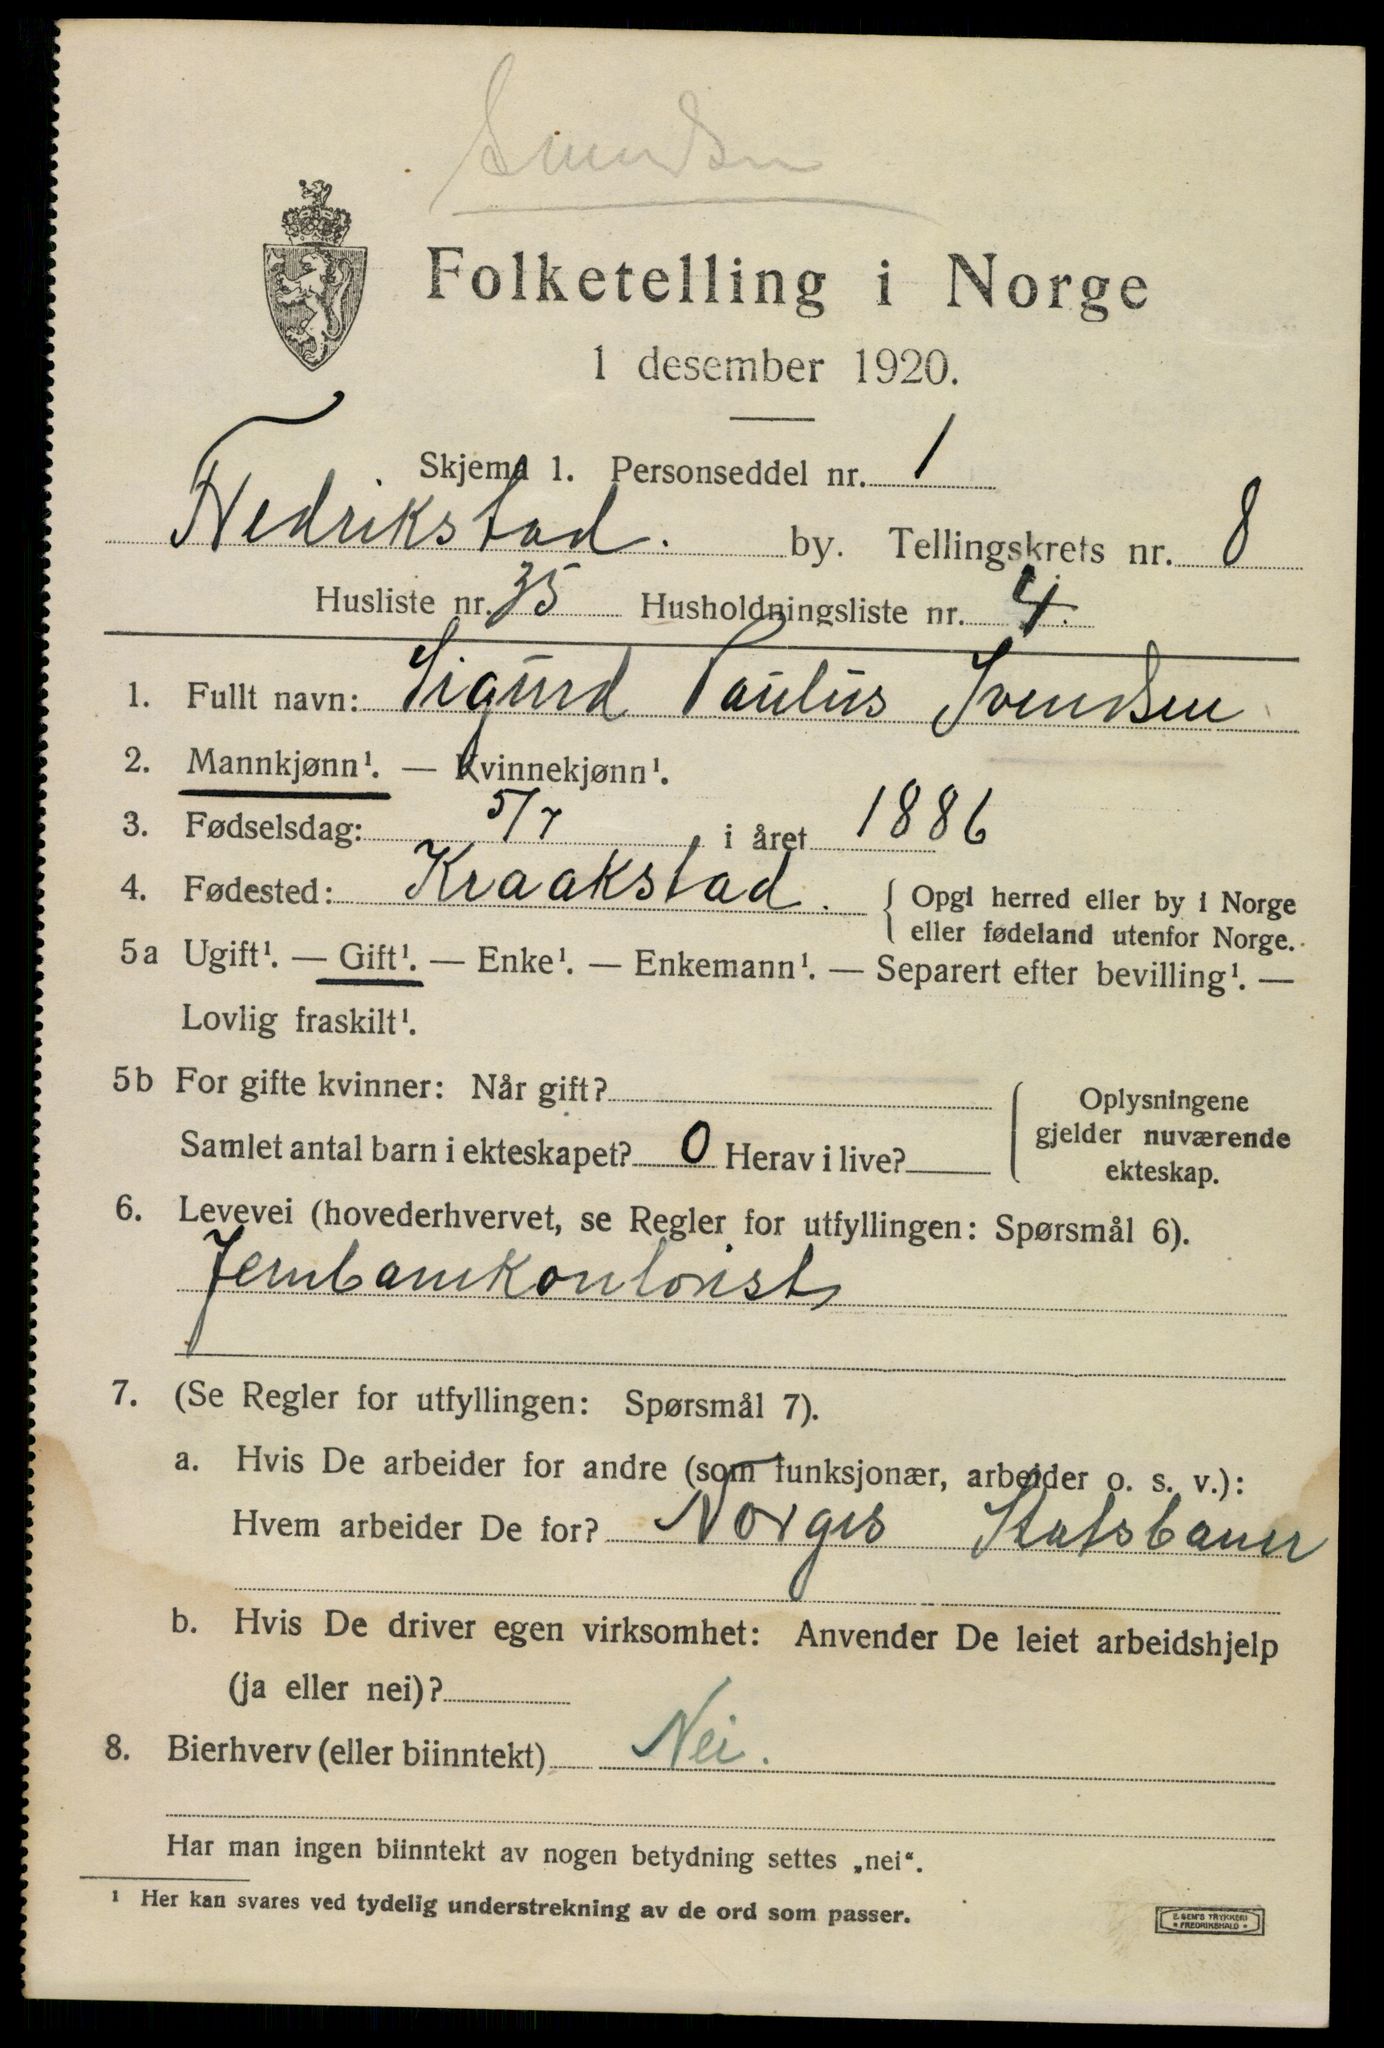 Svendsen
Folketelling i Norge
1 desember 1920.
Skjema 1. Personseddel nr. 1
Fredrikstad. by. Tellingskrets nr. 8
Husliste nr. 35 Husholdningsliste nr. 4.
1. Fullt navn: Sigurd Paulus Svendsen
2. Mannkjønn¹. — Kvinnekjønn¹.
3. Fødselsdag: 5/7 i året 1886
4. Fødested: Kraakstad. { Opgi herred eller by i Norge
eller fødeland utenfor Norge.
5a Ugift¹. — Gift¹. — Enke¹. — Enkemann¹. — Separert efter bevilling¹. —
Lovlig fraskilt¹.
5b For gifte kvinner: Når gift?
Samlet antal barn i ekteskapet? 0 Herav i live?
Oplysningene
gjelder nuværende
ekteskap.
6. Levevei (hovederhvervet, se Regler for utfyllingen: Spørsmål 6).
Jernbanekontorist
7. (Se Regler for utfyllingen: Spørsmål 7).
a. Hvis De arbeider for andre (som funksjonær, arbeider o. s. v.):
Hvem arbeider De for? Norges Statsbaner
b. Hvis De driver egen virksomhet: Anvender De leiet arbeidshjelp
(ja eller nei)?
8. Bierhverv (eller biinntekt) Nei.
Har man ingen biinntekt av nogen betydning settes „nei“.
¹ Her kan svares ved tydelig understrekning av de ord som passer.
E. SEM'S TRYKKERI
* FREDRIKSHALD *